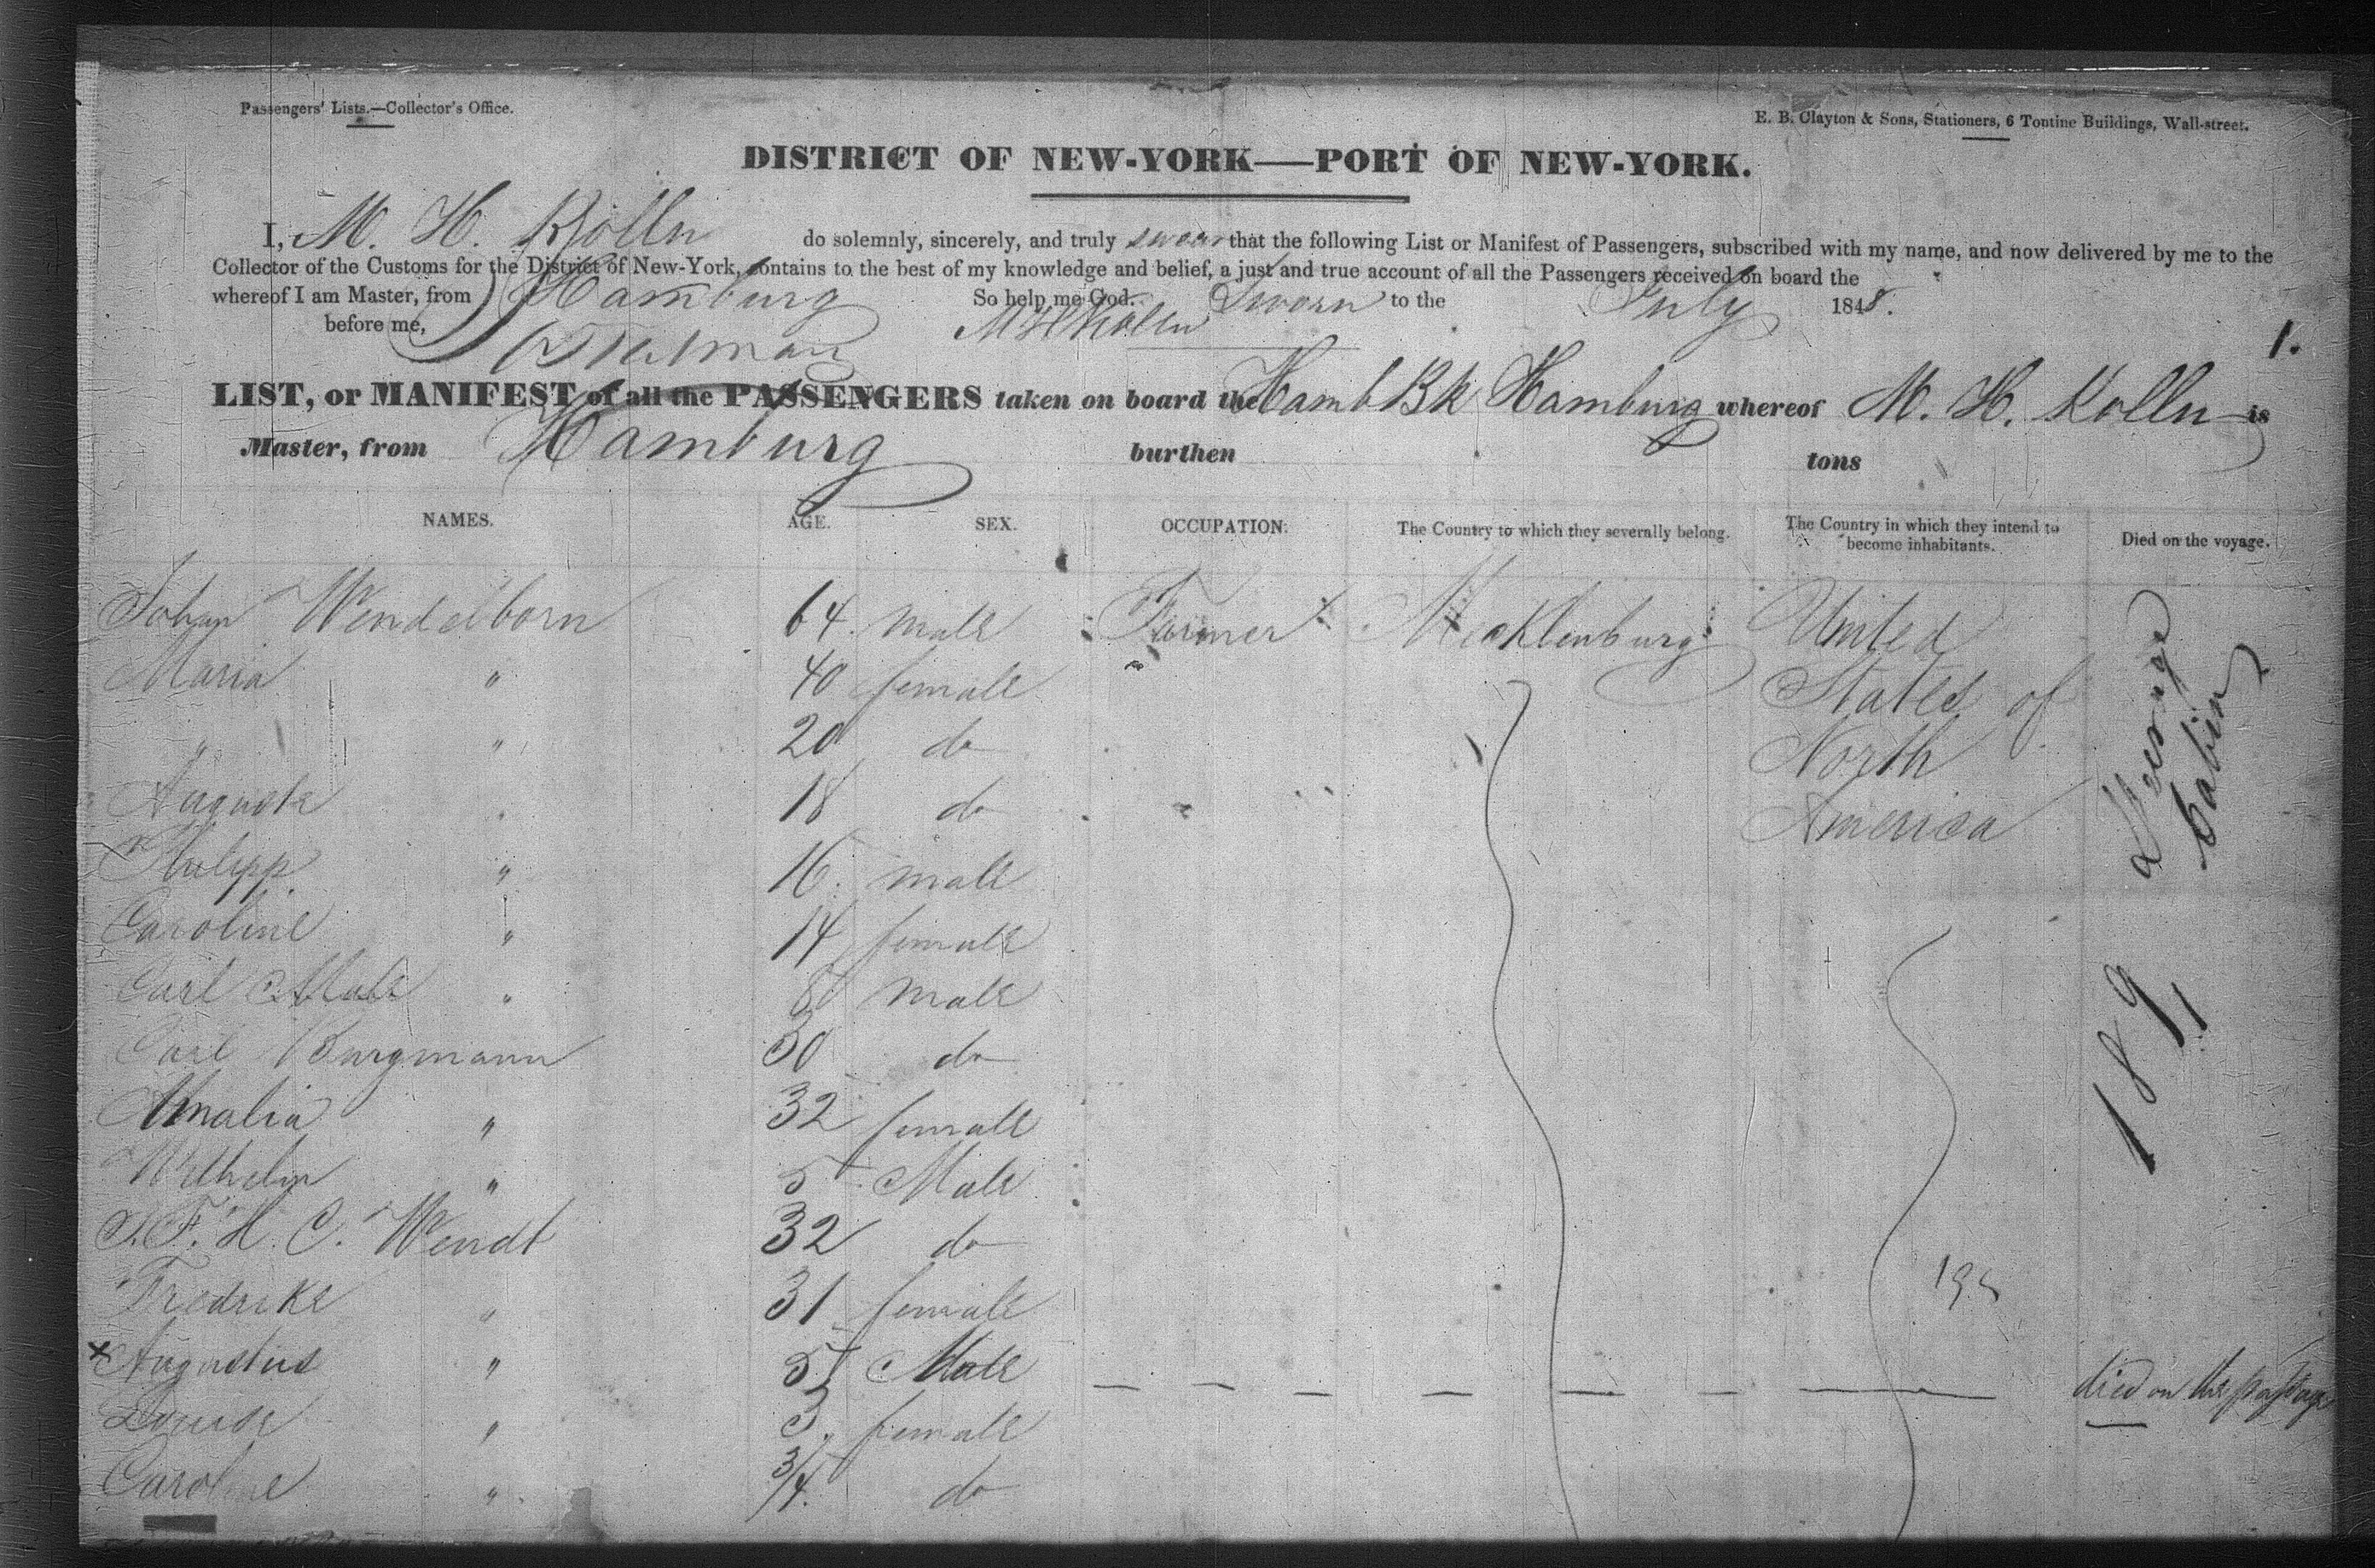 Passengers' Lists.—Collector's Office.
E. B. Clayton & Sons, Stationers, 6 Tontine Buildings, Wall-street.
DISTRICT OF NEW-YORK—PORT OF NEW-YORK.
I, M. H. Kölln do solemnly, sincerely, and truly swear that the following List or Manifest of Passengers, subscribed with my name, and now delivered by me to the
Collector of the Customs for the District of New-York, contains to the best of my knowledge and belief, a just and true account of all the Passengers received on board the
whereof I am Master, from Hamburg So help me God. Sworn to the July 1848.
before me, M H Kölln
1.
LIST, or MANIFEST of all the PASSENGERS taken on board the Hamb Bk Hamburg whereof M. H. Kölln is
Master, from Hamburg burthen tons
NAMES. AGE. SEX. OCCUPATION. The Country to which they severally belong. The Country in which they intend to become inhabitants. Died on the voyage.
Johan Wendelborn 64 male Farmer Mecklenburg United
Maria " 40 female States of
" " 20 do North
Auguste " 18 do America
Philipp " 16. male
Caroline " 14 female
Carl " 8 male
Carl Burgmann 30 do
Amalia " 32 female
Wilhelm " 5 Male
J. F. H. C. Wendt 32 do
Fredrike " 31 female
x Augustus " 5 Male — — — — — — — died on the passage
Louise " 3. female
Caroline " 3/4. do
Steerage
Cabin
189
1